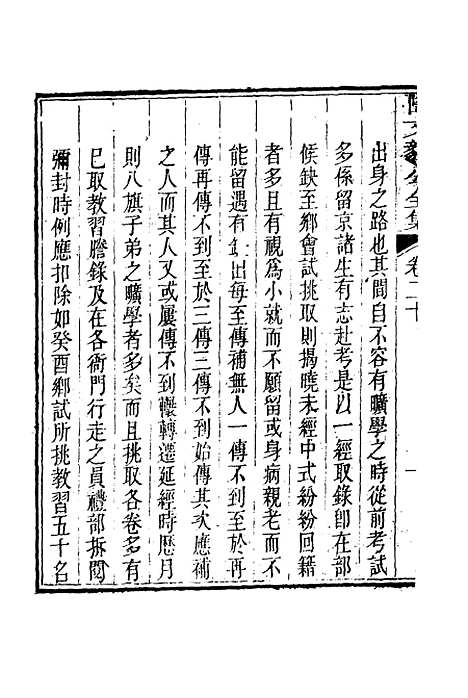 文毅公全集 卷二十
出身之路也其間自不容有曠學之時從前考試
多係留京諸生有志赴考是以一經取錄卽在部
候缺至鄉會試挑取則揭曉未經中式紛紛回籍
者多且有視爲小就而不願留或身病親老而不
能留遇有缺出每至傳補無人一傳不到至於再
傳再傳不到至於三傳三傳不到始傳其次應補
之人而其人又或屢傳不到輾轉遷延經時歷月
則八旗子弟之曠學者多矣而且挑取各卷多有
已取教習謄錄及在各衙門行走之員禮部拆閱
彌封時例應扣除如癸酉鄉試所挑教習五十名